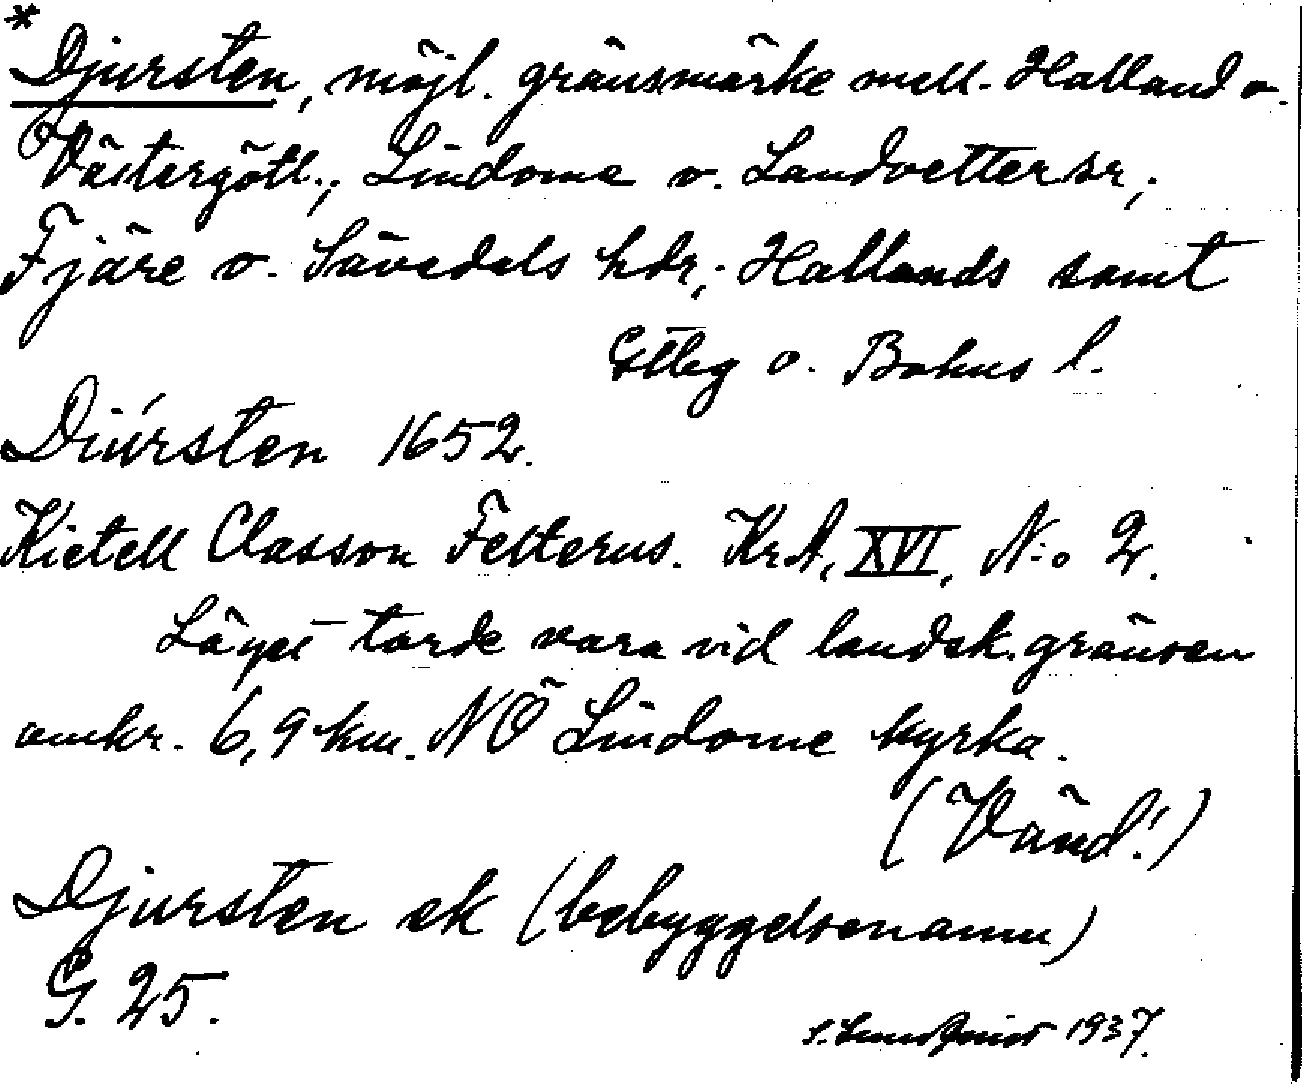 *
Djursten, möjl. gränsmärke mell. Halland o.
Västergötl.; Lindome o. Landvetter sr;
Fjäre o. Sävedals hdr; Hallands samt
Gtbg o. Bohus l.
Diúrsten 1652.
Kietell Classon Felterus. KrA, XVI, N:o 2.
Läget torde vara vid landsk.gränsen
omkr. 6,9 km. NÖ Lindome kyrka.
(Vänd!)
Djursten ek (bebyggelsenamn)
G. 25.
S. Lundqvist 1937.